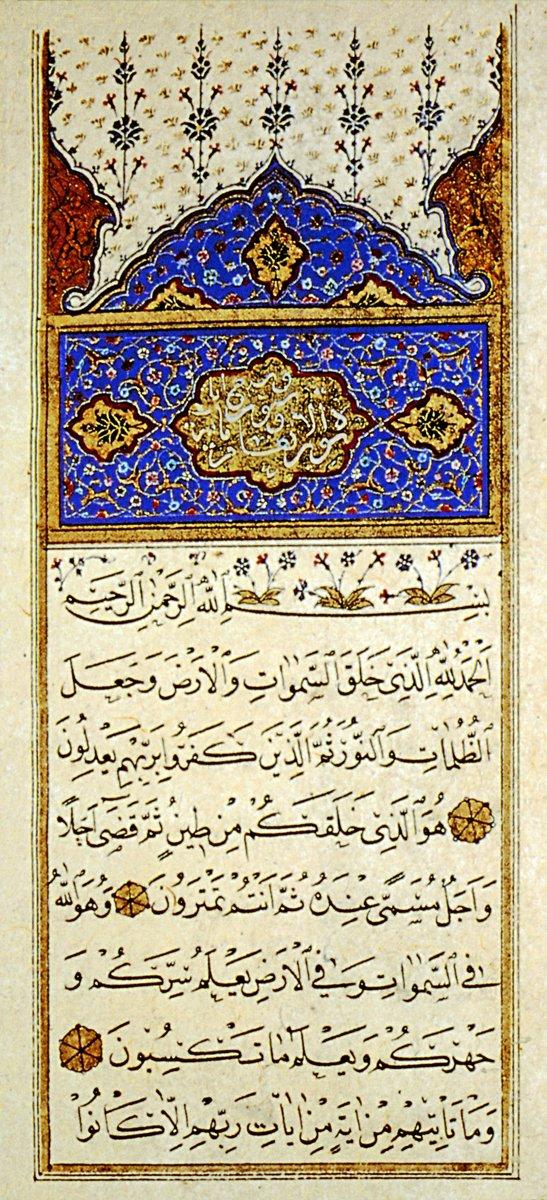 سورة الانعام
بِسْمِ اللّٰهِ الرَّحْمٰنِ الرَّحِيمِ
اَلْحَمْدُ لِلّٰهِ الَّذِي خَلَقَ السَّمٰوَاتِ وَالْاَرْضَ وَجَعَلَ
الظُّلُمَاتِ وَالنُّورَ ثُمَّ الَّذِينَ كَفَرُوا بِرَبِّهِمْ يَعْدِلُونَ
هُوَ الَّذِي خَلَقَكُمْ مِنْ طِينٍ ثُمَّ قَضٰى اَجَلًا
وَاَجَلٌ مُسَمًّى عِنْدَهُ ثُمَّ اَنْتُمْ تَمْتَرُونَ وَهُوَ اللّٰهُ
فِي السَّمٰوَاتِ وَفِي الْاَرْضِ يَعْلَمُ سِرَّكُمْ وَ
جَهْرَكُمْ وَيَعْلَمُ مَا تَكْسِبُونَ
وَمَا تَأْتِيهِمْ مِنْ اٰيَةٍ مِنْ اٰيَاتِ رَبِّهِمْ اِلَّا كَانُوا